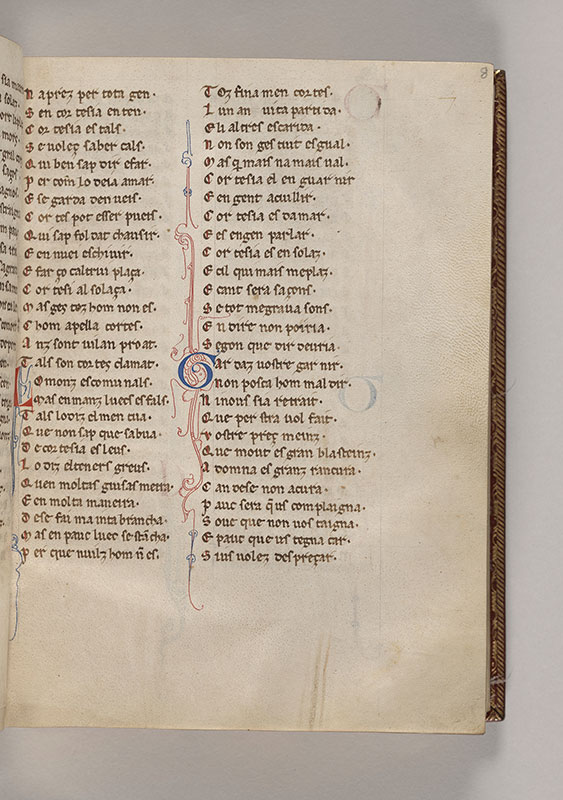 N aprez per tota gen.
S en cortesia enten.
C ortesia es tals.
S e volez saber cals.
Q ui ben sap dir e far.
P er com lo deia amar.
E se garda d enueis.
C ortes pot esser pueis.
Q ui sap fol dat chausir.
E en nuei eschivir.
E far ço c altrui plaça.
C ortesi al solaça.
M as ges toz hom non es.
C hom apella cortes.
A nz sont vilan proat.
T als son cortes clamat.
L o monz es comunals.
M as en manz luecs es fals.
T als lodiz el men tua.
Q ue non sap que sabua.
D e cortesia es leus.
L o diz el teners greus.
Q u en moltas guisas meira.
E en molta maneira.
D ese fai manta brancha.
M as en pauc luec se stācha.
P er que nuilz hom ñ es.
T oz fina men cortes.
L un an vita partida.
E li altres escarida.
N on son ges tuit esgual.
M as q mais na mais val.
C ortesia el en guarnir
E en gent acullir.
C ortesia es d amar.
E es en gen parlar.
C ortesia es en solaz.
E cil qui mais me plaz.
E cant sera saçons.
S e tot me grava sons.
E n dire non poiria.
S egon que dir deuria.
G ardaz vostre garnir.
Q non posca hom mal dir.
N i nous sia retrait.
Q ue per stra vol fait.
V ostre prez meinz.
Q ue mout es gran blasteinz.
A domna es granz rancura.
C an dese non a cura.
P auc sera q us complaigna.
S oue que non vos taigna.
E pauc que us tegna car.
S i us volez despreçar.
8